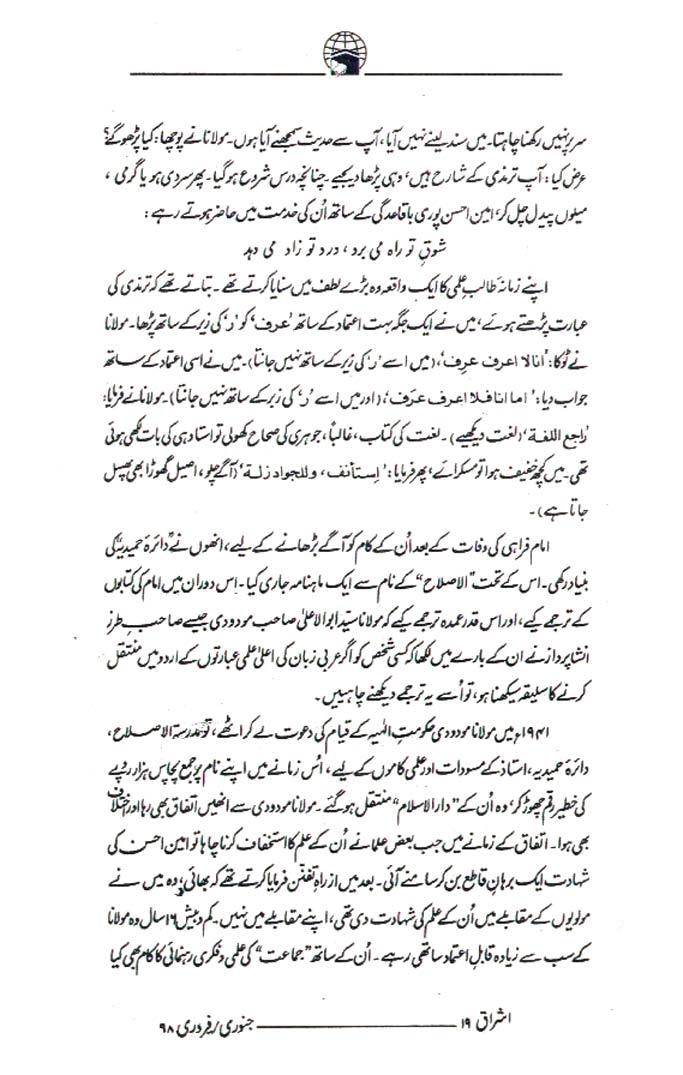 سر پر نہیں رکھنا چاہتا۔ میں سند لینے نہیں آیا، آپ سے حدیث سمجھنے آیا ہوں۔ مولانا نے پوچھا: کیا پڑھو گے؟
عرض کیا: آپ ترمذی کے شارح ہیں، وہی پڑھا دیجیے۔ چنانچہ درس شروع ہو گیا۔ پھر سردی ہو یا گرمی،
میلوں پیدل چل کر، امین احسن پوری باقاعدگی کے ساتھ اُن کی خدمت میں حاضر ہوتے رہے:
شوقِ تو راہ می برد، درد تو زاد می دہد
اپنے زمانۂ طالب علمی کا ایک واقعہ وہ بڑے لطف میں سنایا کرتے تھے۔ بتاتے تھے کہ ترمذی کی
عبارت پڑھتے ہوئے، میں نے ایک جگہ بہت اعتماد کے ساتھ ’عرف‘ کو ’ر‘ کی زیر کے ساتھ پڑھا۔ مولانا
نے ٹوکا: ’انا لا اعرف عرِف‘، (میں اسے ’ر‘ کی زیر کے ساتھ نہیں جانتا)۔ میں نے اسی اعتماد کے ساتھ
جواب دیا: ’اما انا فلا اعرف عرَف‘، (اور میں اسے ’ر‘ کی زبر کے ساتھ نہیں جانتا)۔ مولانا نے فرمایا:
’راجع اللغة‘ (لغت دیکھیے)۔ لغت کی کتاب، غالباً، جوہری کی صحاح کھولی تو استاد ہی کی بات لکھی ہوئی
تھی۔ میں کچھ خفیف ہوا تو مسکرائے، پھر فرمایا: ’استأنف، وللجواد زلة‘ (آگے چلو، اصیل گھوڑا بھی پھسل
جاتا ہے)۔
امام فراہی کی وفات کے بعد اُن کے کام کو آگے بڑھانے کے لیے، انھوں نے ”دائرۂ حمیدیہ“ کی
بنیاد رکھی۔ اس کے تحت ”الاصلاح“ کے نام سے ایک ماہنامہ جاری کیا۔ اس دوران میں امام کی کتابوں
کے ترجمے کیے، اور اس قدر عمدہ ترجمے کیے کہ مولانا سید ابوالاعلیٰ صاحب مودودی جیسے صاحبِ طرز
انشا پرداز نے ان کے بارے میں لکھا کہ کسی شخص کو اگر عربی زبان کی اعلیٰ علمی عبارتوں کے اردو میں منتقل
کرنے کا سلیقہ سیکھنا ہو، تو اُسے یہ ترجمے دیکھنے چاہییں۔
۱۹۴۱ء میں مولانا مودودی حکومتِ الٰہیہ کے قیام کی دعوت لے کر اٹھے، تو مدرسۃ الاصلاح،
دائرۂ حمیدیہ، استاذ کے مسودات اور علمی کاموں کے لیے، اُس زمانے میں اپنے نام پر جمع پچاس ہزار روپے
کی خطیر رقم چھوڑ کر، وہ اُن کے ”دارالاسلام“ منتقل ہو گئے۔ مولانا مودودی سے انھیں اتفاق بھی رہا اور اختلاف
بھی ہوا۔ اتفاق کے زمانے میں جب بعض علما نے اُن کے علم کا استخفاف کرنا چاہا تو امین احسن کی
شہادت ایک برہانِ قاطع بن کر سامنے آئی۔ بعد میں از راہِ تفنن فرمایا کرتے تھے کہ بھائی، وہ میں نے
مولویوں کے مقابلے میں اُن کے علم کی شہادت دی تھی، اپنے مقابلے میں نہیں۔ کم و بیش ۱۶ سال وہ مولانا
کے سب سے زیادہ قابلِ اعتماد ساتھی رہے۔ اُن کے ساتھ ”جماعت“ کی علمی و فکری رہنمائی کا کام بھی کیا
اشراق ۱۹ جنوری/فروری ۹۸